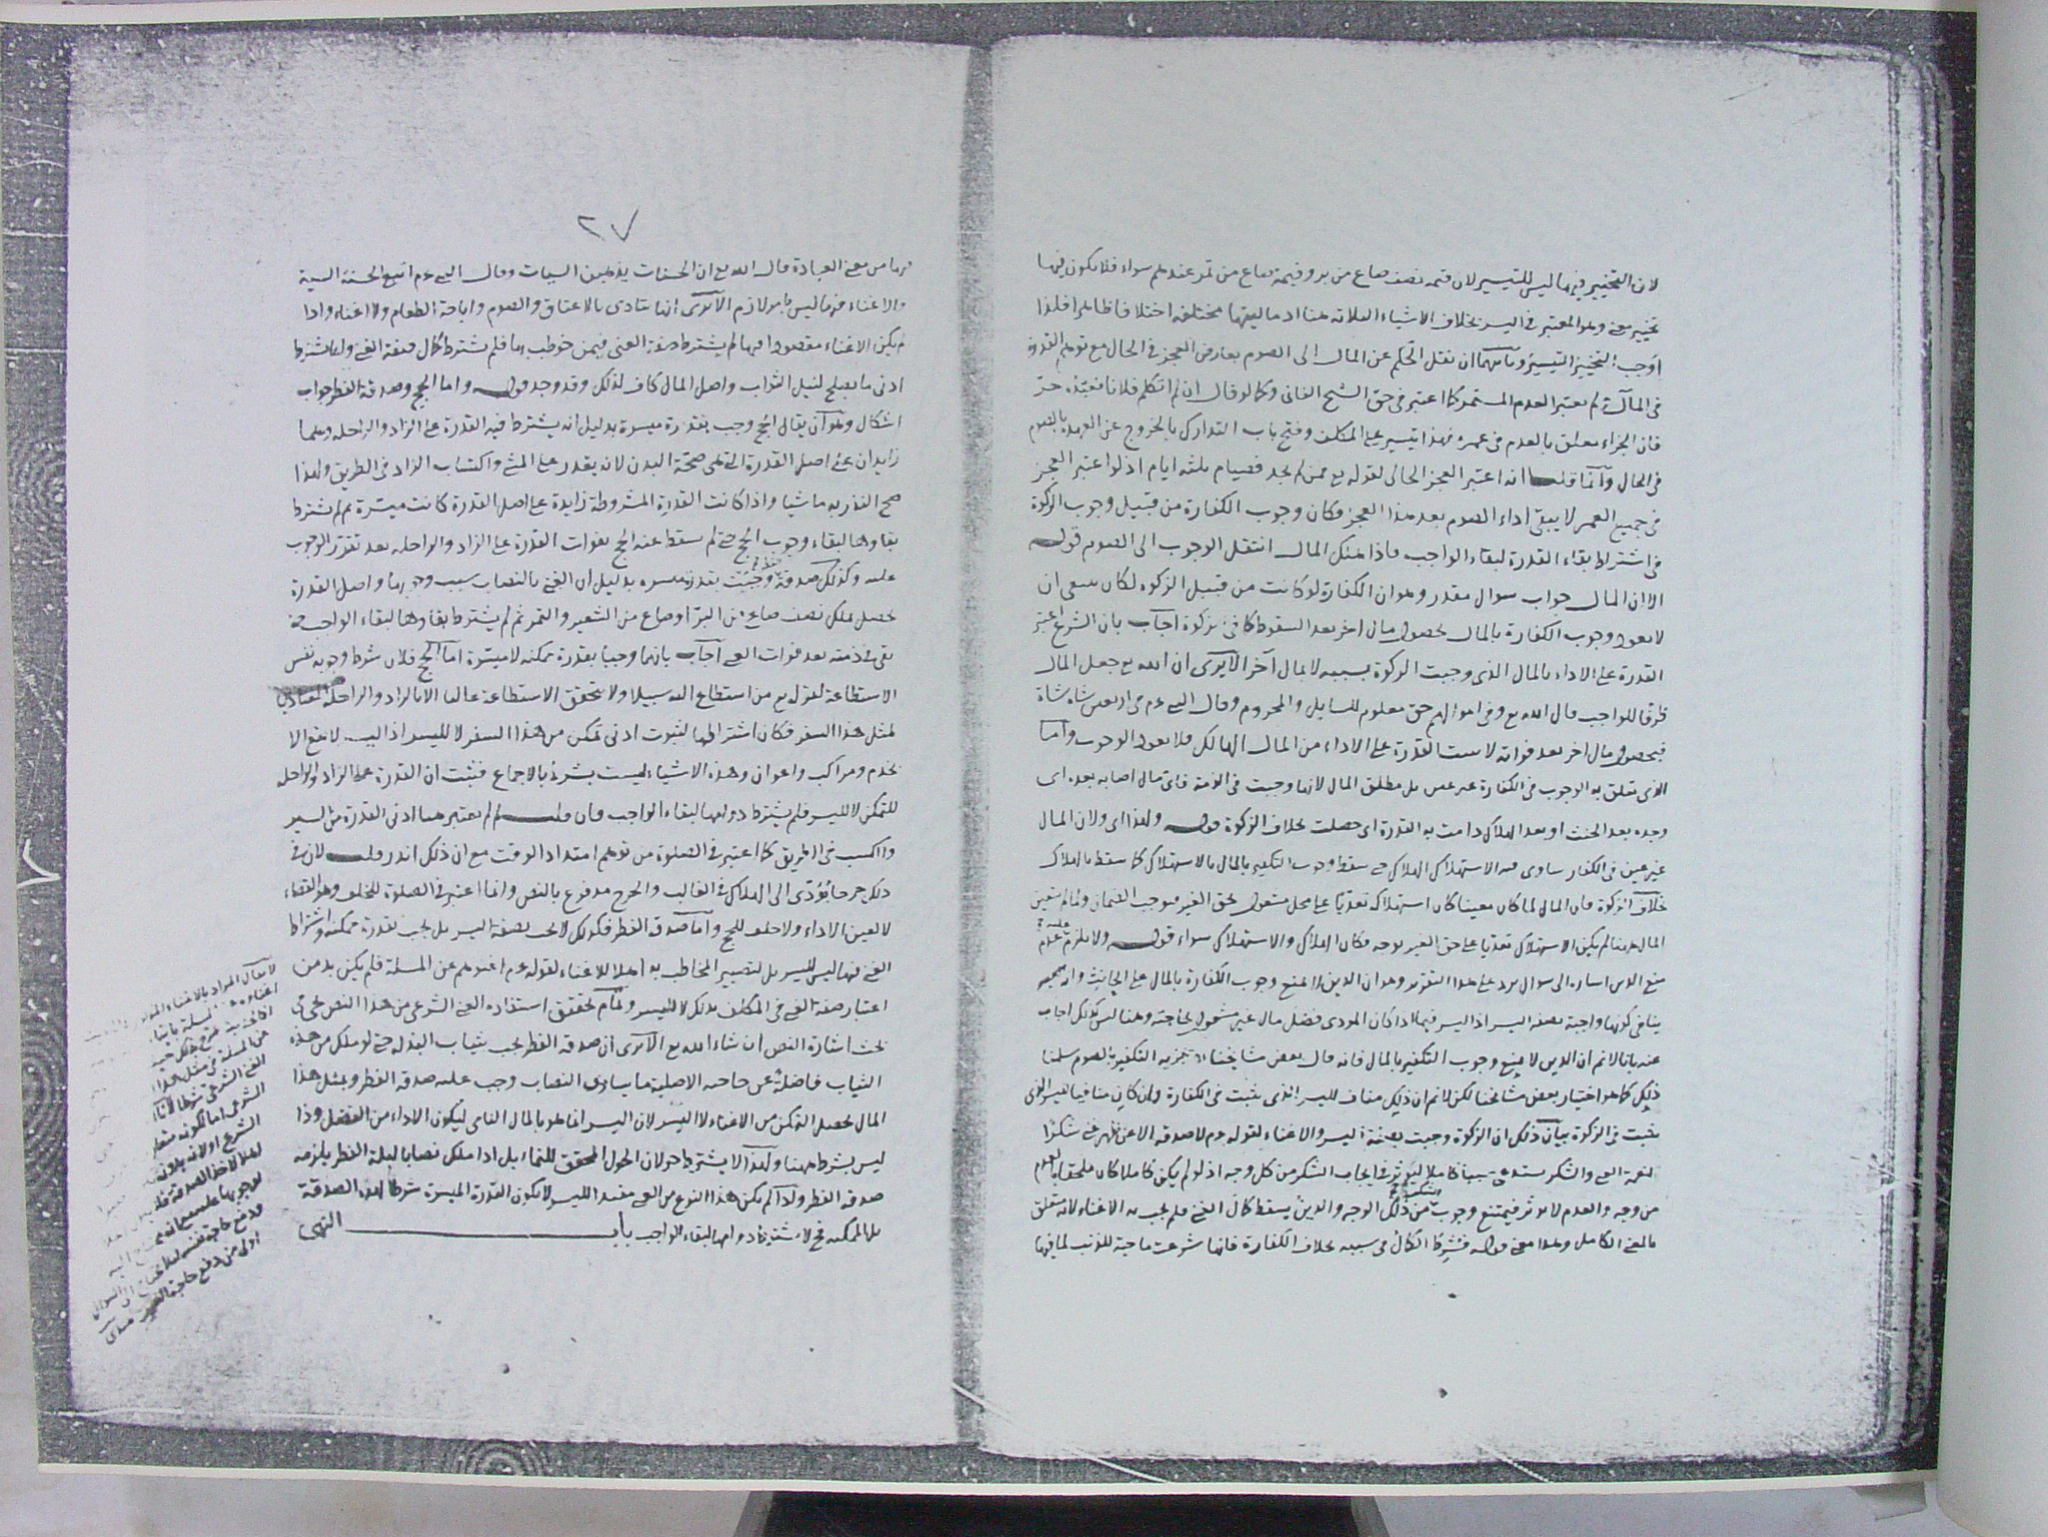 لان التخيير فيها ليس للتيسير لان قيمة نصف صاع من بر وقيمة صاع من تمر عندهم سواء فلا يكون فيها
تخيير معنى وهو المعتبر في اليسر بخلاف الاشياء الثلاثة هنا اذ ماليتها مختلفة اختلافا ظاهرا فلذا
اوجب التخيير التيسير وثانيهما ان نقل الحكم عن المال الى الصوم بعارض العجز في الحال مع توهم القدرة
في المآل ثم لم يعتبر العدم المستمر كما اعتبر في حق الشيخ الفاني وكما لو قال ان لم اتكلم فلانا فعبده حر
فان الجزاء معلق بالعدم في عمره فهذا تيسير على المكلف وفتح باب التدارك بالخروج عن العهدة بالصوم
في الحال وانما قلنا انه اعتبر العجز الحالي لقوله تع فمن لم يجد فصيام ثلثة ايام اذ لو اعتبر العجز
في جميع العمر لا يبقى اداء الصوم بعد هذا العجز فكان وجوب الكفارة من قبيل وجوب الزكوة
في اشتراط بقاء القدرة لبقاء الواجب فاذا هلك المال انتقل الوجوب الى الصوم قوله
الا ان المال جواب سوال مقدر وهو ان الكفارة لو كانت من قبيل الزكوة لكان ينبغي ان
لا يعود وجوب الكفارة بالمال بحصول مال اخر بعد السقوط كما في الزكوة اجاب بان الشرع اعتبر
القدرة على الاداء بالمال الذي وجبت الزكوة بسببه لا بمال آخر الا يرى ان الله تع جعل المال
ظرفا للواجب قال الله تع وفي اموالهم حق معلوم للسايل والمحروم وقال النبي عم في اربعين شاة شاة
فبحصول مال اخر بعد فواته لا يثبت القدرة على الاداء من المال الهالك فلا يعود الوجوب واما
الذي يتعلق به الوجوب في الكفارة غير عين بل مطلق المال لانها وجبت في الذمة فاي مال اصابه بعده اي
وجده بعد الحنث او بعد الهلاك دامت به القدرة اي حصلت بخلاف الزكوة قوله ولهذا اي ولان المال
غير عين في الكفار ساوى فيه الاستهلاك الهلاك حتى سقط وجوب التكفير بالمال بالاستهلاك كما سقط بالهلاك
بخلاف الزكوة فان المال لما كان معينا كان استهلاكه تعديا على محل مشغول بحق الغير فيوجب الضمان ولما لم يتعين
المال ههنا لم يكن الاستهلاك تعديا على حق الغير بوجه فكان الهلاك والاستهلاك سواء قوله ولا يلزم عليه عدم
منع الدين اشارة الى سوال يرد على هذا التقرير وهو ان الدين لا يمنع وجوب الكفارة بالمال على الحانث وانه
ينافي كونها واجبة بصفة اليسر اذ اليسر فيما اذا كان المودى فضل مال غير مشغول بحاجته وهنا ليس كذلك اجاب
عنه بانا لا نم ان الدين لا يمنع وجوب التكفير بالمال فانه قال بعض مشايخنا انه يجزيه التكفير بالصوم سلمنا
ذلك كما هو اختيار بعض مشائخنا لكن لا نم ان ذلك مناف لليسر الذي يثبت في الكفارة وان كان منافيا لليسر الذي
يثبت في الزكوة بيان ذلك ان الزكوة وجبت بصفة اليسر والاغناء لقوله عم لا صدقة الا عن ظهر غنى شكرا
لنعمة الغنى والشكر يستدعي سببا كاملا ليؤثر في ايجاب الشكر من كل وجه اذ لو لم يكن كاملا كان ملحقا بالعدم
من وجه والعدم لا يوثر فيمتنع وجوب الشكر من ذلك الوجه والدين يسقط كمال الغنى فلم يجب به الاغناء لانه متعلق
بالغنى الكامل وهذا معنى قوله فشرط الكمال في سببه بخلاف الكفارة فانها شرعت ماحية للذنب لما فيها
٢٧
فيها من معنى العبادة قال الله تع ان الحسنات يذهبن السيات وقال النبي عم اتبع الحسنة السيئة
والاغناء فيها ليس بامر لازم الا يرى انها تتادى بالاعتاق والصوم واباحة الطعام ولا اغناء واذا
لم يكن الاغناء مقصودا فيها لم يشترط صفة الغنى فيمن خوطب بها فلم يشترط كمال صفة الغنى ولكن يشترط
ادنى ما يصلح لنيل الثواب واصل المال كاف لذلك وقد وجد قوله واما الحج وصدقة الفطر جواب
اشكال وهو ان يقال الحج وجب بقدرة ميسرة بدليل انه يشترط فيه القدرة على الزاد والراحلة وهما
زايدان على اصل القدرة التي هي صحة البدن لانه يقدر على المشي واكتساب الزاد في الطريق ولهذا
صح النذر به ماشيا واذا كانت القدرة المشروطة زايدة على اصل القدرة كانت ميسرة ثم لم يشترط
بقاوها لبقاء وجوب الحج حتى لم يسقط عنه الحج بفوات القدرة على الزاد والراحلة بعد تقرر الوجوب
عليه وكذلك صدقة الفطر وجبت بقدرة ميسرة بدليل ان الغنى بالنصاب سبب وجوبها واصل القدرة
يحصل بملك نصف صاع من البر او صاع من الشعير والتمر ثم لم يشترط بقاوها لبقاء الواجب حتى
بقي في ذمته بعد فوات الغنى اجاب بانهما وجبا بقدرة ممكنة لا ميسرة اما الحج فلان شرط وجوبه نفس
الاستطاعة لقوله تع من استطاع اليه سبيلا ولا يتحقق الاستطاعة غالبا الا بالزاد والراحلة
لمثل هذا السفر فكان اشتراطهما لثبوت ادنى تمكن من هذا السفر لا لليسر اذ اليسر لا يقع الا
بخدم ومراكب واعوان وهذه الاشياء ليست بشرط بالاجماع فثبت ان القدرة على الزاد والراحلة
للتمكن لا لليسر فلم يشترط دوامها لبقاء الواجب فان قلت لم لم يعتبر هنا ادنى القدرة مثل السير
والكسب في الطريق كما اعتبر في الصلوة من توهم امتداد الوقت مع ان ذلك اندر قلت لان في
ذلك حرجا يؤدي الى الهلاك في الغالب والحرج مدفوع بالنص وانما اعتبر في الصلوة للخلف وهو القضاء
لا لعين الاداء ولا خلف للحج واما صدقة الفطر فكذلك لا تجب بصفة اليسر بل تجب بقدرة ممكنة واشتراط
الغنى فيها ليس لليسر بل لتصيير المخاطب به اهلا للاغناء لقوله عم اغنوهم عن المسلة فلم يكن بد من
اعتبار صفة الغنى في المكلف بذلك لا لليسر وتمام تحقيق استفادة الغنى الشرعي من هذا النص يجي في
بحث اشارة النص ان شاء الله تع الا يرى ان صدقة الفطر تجب بثياب البذلة حتى لو ملك من هذه
الثياب فاضلة عن حاجته الاصلية ما يساوى النصاب وجب عليه صدقة الفطر وبمثل هذا
المال يحصل التمكن من الاغناء لا اليسر لان اليسر انما هو بالمال النامي ليكون الاداء من الفضل وذا
ليس بشرط ههنا ولهذا لا يشترط حولان الحول المحقق للنماء بل اذا ملك نصابا ليلة الفطر يلزمه
صدقة الفطر ولذا لم يكن هذا النوع من الغنى مفيدا لليسر لا يكون القدرة الميسرة شرطا لهذه الصدقة
بل الممكنة فح لا يشترط دوامها لبقاء الواجب باب النهي
لا يقال المراد بالاغناء
عن المسلة في مثل هذا
الغنى الشرعي شرطا
الشرع اولا
لئلا لاخذ الصدقة
فدفع حاجة نفسه لئلا يحتاج الى السوال
اولى من دفع حاجة الغير